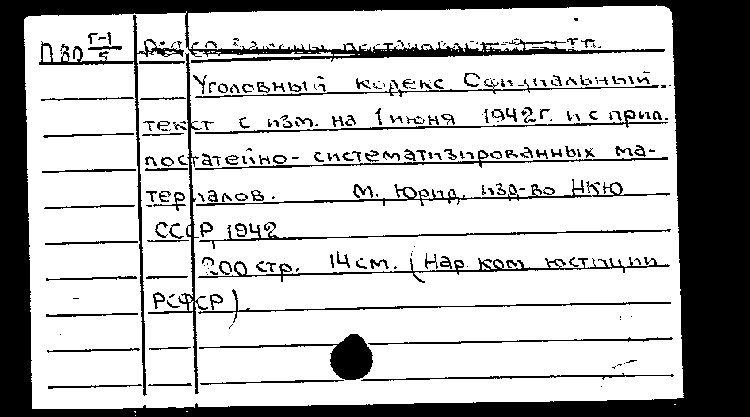 П 80 Г-1/5 РСФСР. Законы, постановлен
Уголовный кодекс. Официальный
текст с изм. на 1 июня 1942 г. и с прил.
постатейно-систематизированных ма-
териалов. М., Юрид. изд-во НКЮ
СССР, 1942
200 стр. 14 см. (Нар. ком. юстиции
РСФСР).